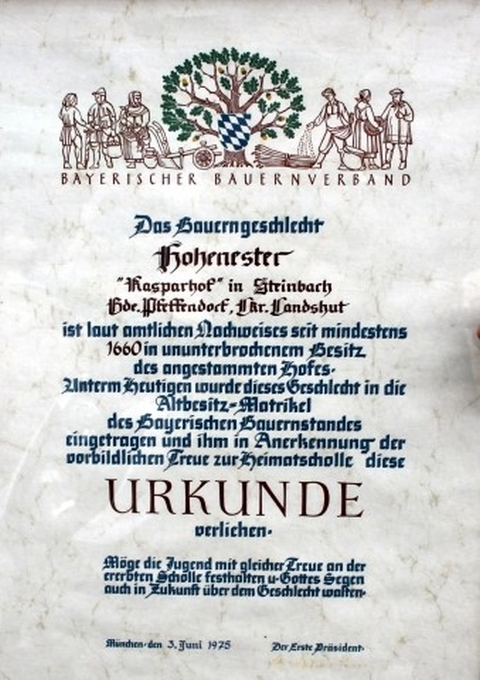 BAYERISCHER BAUERNVERBAND
Das Bauerngeschlecht
Hohenester
"Kasparhof" in Steinbach
Gde. Pfeffendorf, Lkr. Landshut
ist laut amtlichen Nachweises seit mindestens
1660 in ununterbrochenem Besitz
des angestammten Hofes.
Unterm Heutigen wurde dieses Geschlecht in die
Altbesitz-Matrikel
des Bayerischen Bauernstandes
eingetragen und ihm in Anerkennung der
vorbildlichen Treue zur Heimatscholle diese
URKUNDE
verliehen.
Möge die Jugend mit gleicher Treue an der
ererbten Scholle festhalten u. Gottes Segen
auch in Zukunft über dem Geschlecht walten.
München. den 3. Juni 1975 Der Erste Präsident.